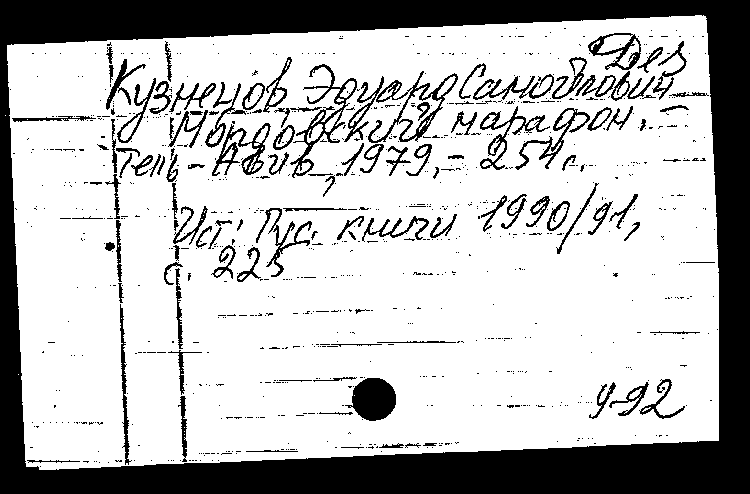 Дез
Кузнецов Эдуард Самойлович
Мордовский марафон. –
Тель-Авив, 1979, – 254 с.
Ист: Рус. книги 1990/91,
с. 225
У-92